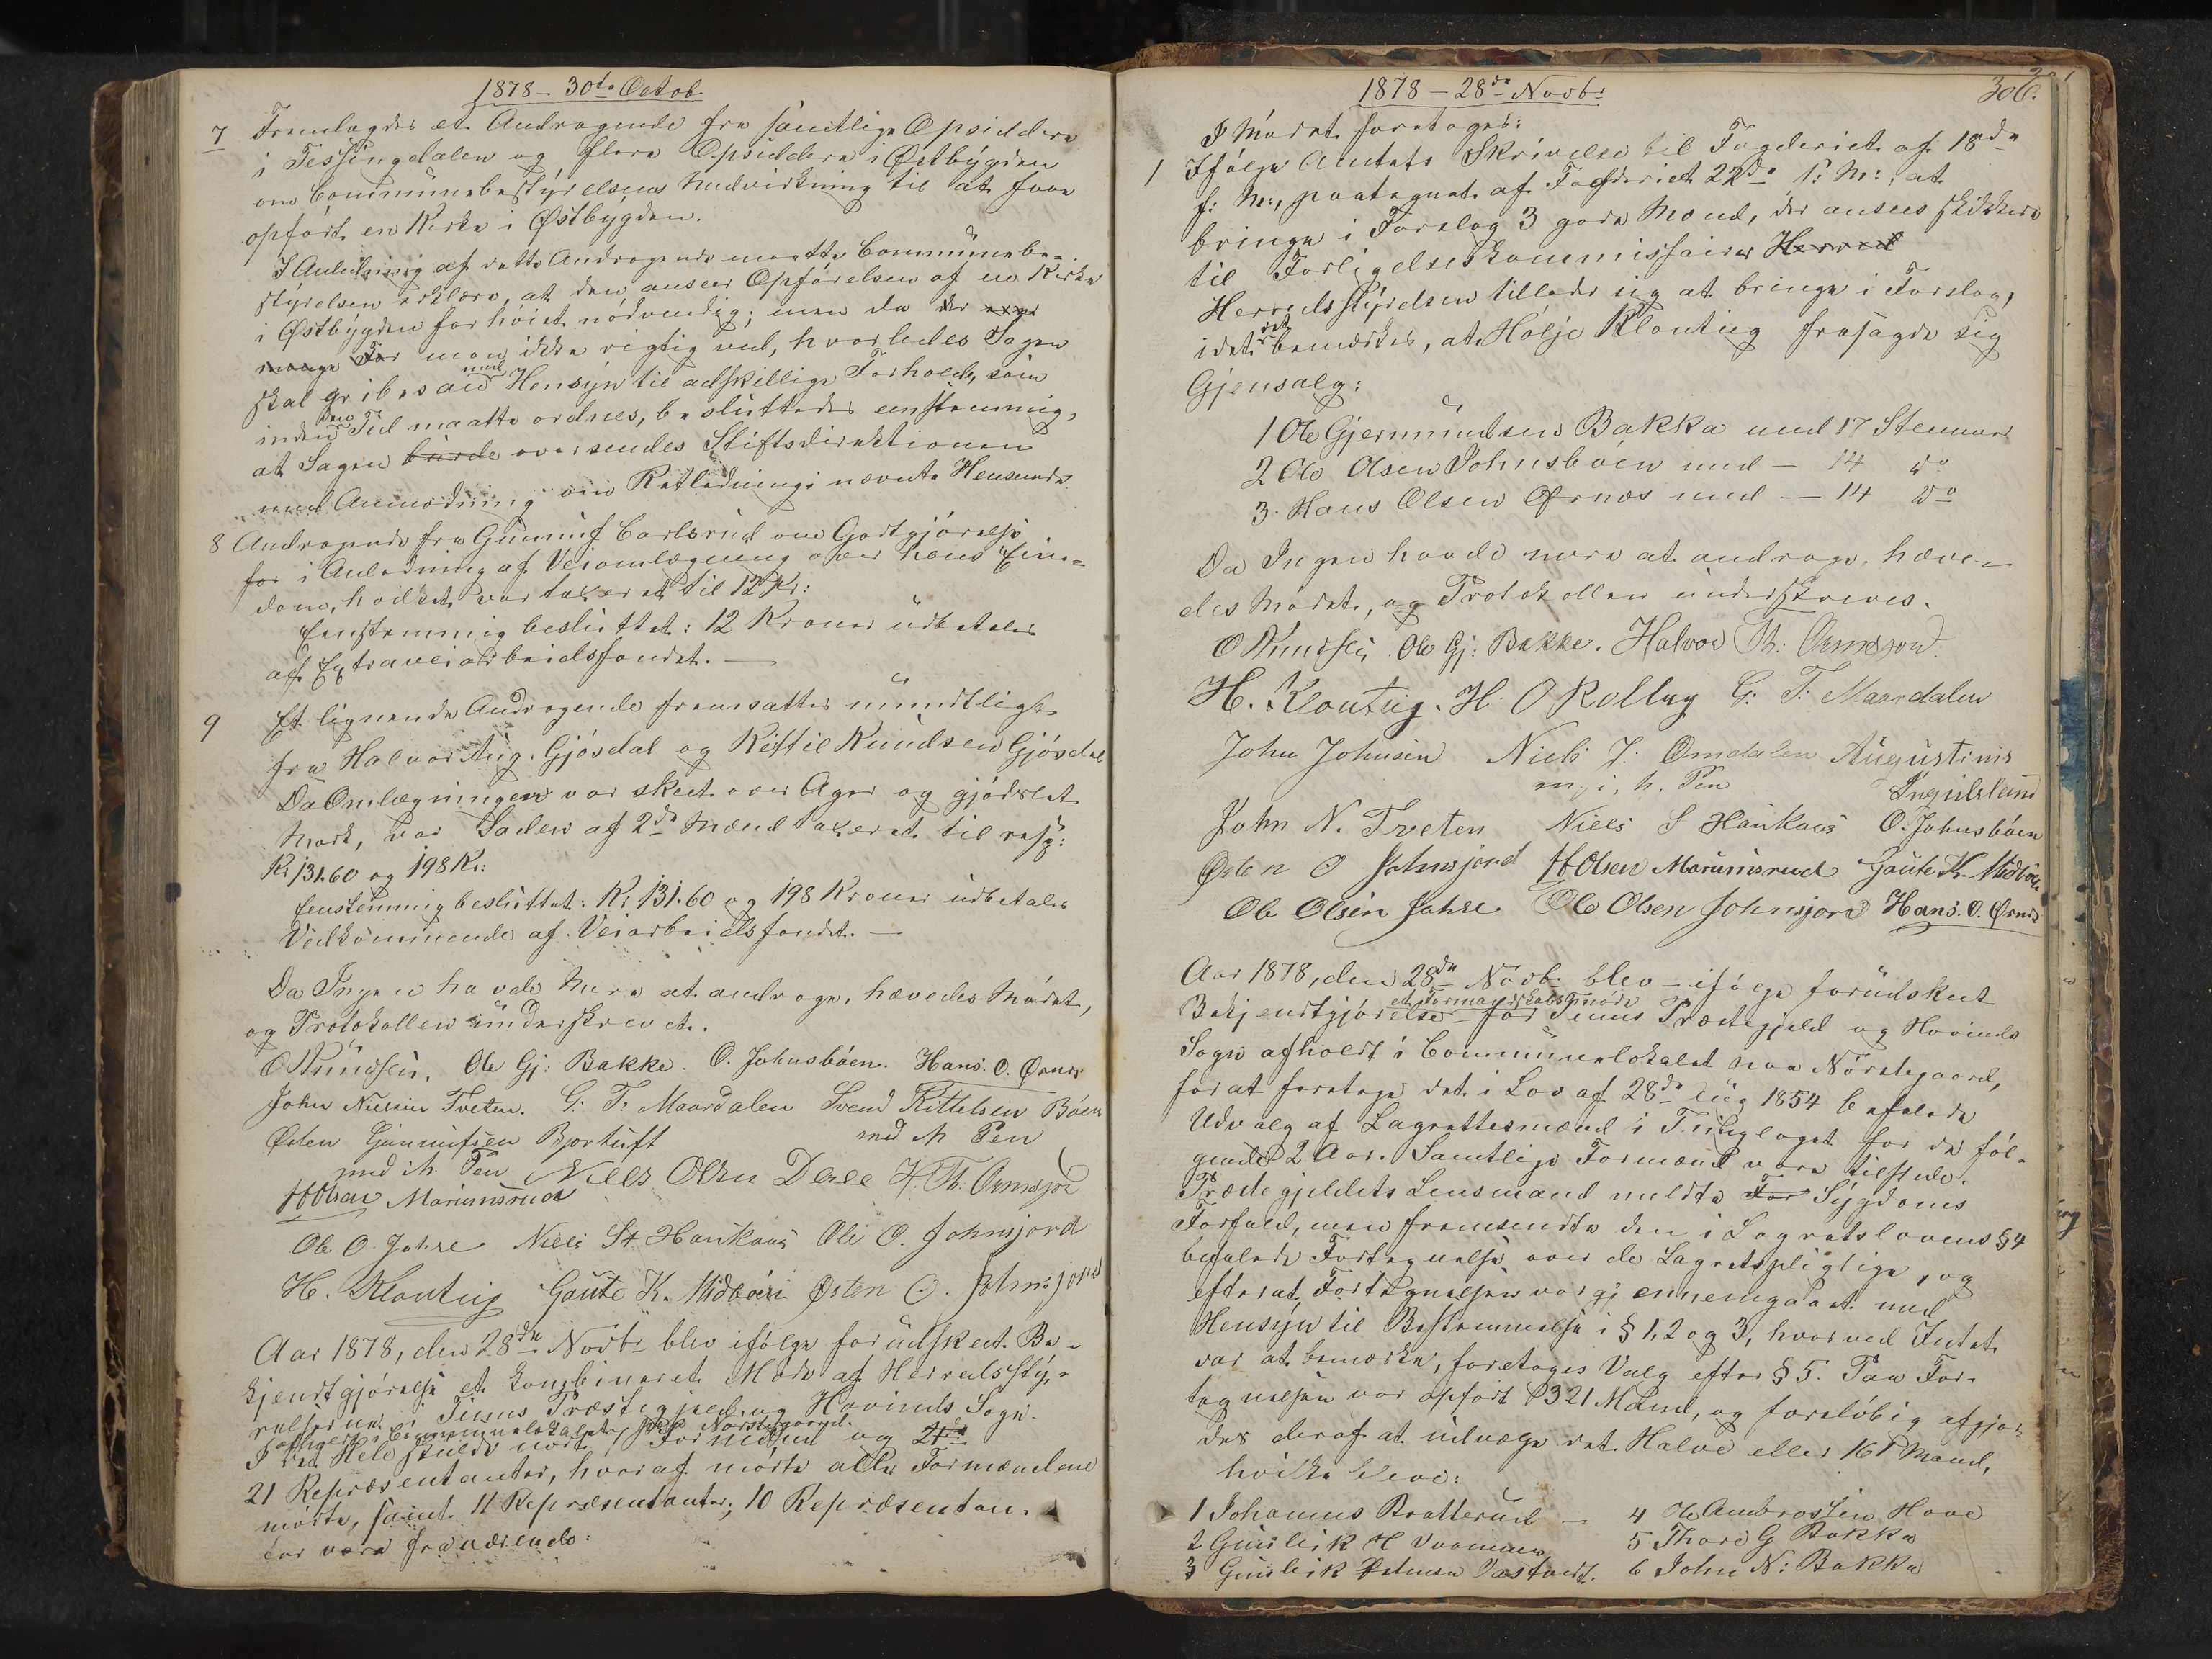 1878 – 30te Octob.
7 Fremlagdes et Andragende fra samtlige Opsiddere
i Tessungdalen og flere Opsiddere i Østbygden
om Communebestyrelsens Medvirkning til at faae
opført en Kirke i Østbygden.
I Anledning af dette Andragende maatte Communebe-
styrelsen erklære, at den anseer Opførelsen af en Kirke
i Østbygden for høist nødvendig; men da der
mange For man ikke rigtig ved, hvorledes Sagen
skal gribes an med Hensyn til adskillige Forhold, som
inden den Tid maatte ordnes, besluttedes eenstemmig,
at Sagen burde oversendes Stiftsdirektionen
med Anmodning om Retledning i nævnte Henseende.
8 Andragende fra Gunnuf Carlsrud om Godtgjørelse
for i Anledning af Veiomlægning over hans Eien-
dom, hvilket var taxeret til 12 Kr:
Eenstemmig besluttet: 12 Kroner udbetales
af Extraveiarbeidsfondet. —
9 Et lignende Andragende fremsattes mundtligt
fra Halvor Aug. Gjøsdal og Kittil Knudsen Gjøsdal
Da Omlægningen var skeet over Ager og gjødslet
Mark, var Skaden af 2de Mænd taxeret til resp:
Kr 131.60 og 198 Kr:
Eenstemmig besluttet: Kr 131.60 og 198 Kroner udbetales
Vedkommende af Veiarbeidsfondet. —
Da Ingen havde mere at andrage, hævedes Mødet,
og Protokollen underskrevet.
O Knudsen. Ole Gj: Bakke. O. Johnsbøen. Hans. O. Ørnes
John Nielsen Tveten. G. T. Maardalen Svend Kittelsen Bøen
med ih. Pen
Østen Gunnufsen Bjortuft
med ih. Pen Niels Olsen Dale H. Th. Ormsjord
H Olsen Marumsrud
Ole O. Jahre Niels St Haukaas Ole O. Johnsjord
H. Klonteig Gaute K. Midbøen Østen O. Johnsjord
Aar 1878, den 28de Novb. blev ifølge forudskeet Be-
kjendtgjørelse et kombineret Møde af Herredsstyr-
relserne i Tinns Præstegjeld og Hovinds Sogn
afholdt i Communelokalet paa Nørstegaard.
I det Hele skulde møde 7 Formænd og 21de
21 Repræsentanter, hvoraf mødte alle Formændene
mødte, samt 11 Repræsentanter; 10 Repræsentan-
ter vare fraværende:
1878 – 28de Novb:
306.
I Mødet foretoges:
1 Ifølge Amtets Skrivelse til Fogderiet af 18de
f: M:, paategnet af Fogderiet 22de s: M:, at
bringe i Forslag 3 gode Mænd, der ansees skikkede
til Forligelseskommissairer Herred
Herredsstyrelsen tillader sig at bringe i Forslag,
idet det bemærkes, at Hølje Klonteig frasagde sig
Gjenvalg:
1 Ole Gjermundsen Bakka med 17 Stemmer
2 Ole Olsen Johnsbøen med — 14 do
3. Hans Olsen Ørnes med — 14 do
Da Ingen havde mere at andrage, hæve-
des Mødet, og Protokollen underskreves.
O Knudsen. Ole Gj: Bakke. Halvor Th: Ormsjord.
H. Klonteig. H. O Rolleg G: T. Maardalen
John Johnsen Niels J: Omdalen Augustinus
m, i, h. Pen Ingulsland
John N. Tveten Niels S Haukaas O. Johnsbøen
Østen O Johnsjord H Olsen Marumsrud Gaute K. Midbøen
Ole Olsen Jahre. Ole Olsen Johnsjord Hans. O. Ørnes
Aar 1878, den 28de Novb. blev – ifølge forudskeet
Bekjendtgjørelse – et Formandskabsmøde for Tinns Præstegjeld og Hovinds
Sogn afholdt i Communelokalet paa Nørstegaard,
for at foretage det i Lov af 28de Aug 1854 befalede
Udvalg af Lagrettesmænd i Thinglaget for de føl-
gende 2 Aar. Samtlige Formænd vare tilstede.
Præstegjeldets Lensmand meldte For Sygdoms
Forfald, men fremsendte den i Lagretslovens § 4
befalede Fortegnelse over de Lagretspligtige, og
efterat Fortegnelsen var gjennemgaaet med
Hensyn til Bestemmelse i § 1, 2 og 3, hvorved Intet
var at bemærke, foretoges Valg efter § 5. Paa For-
tegnelsen var opført 321 Mænd, og foreløbig afgjor-
des deraf at udvælge det Halve eller 161 Mand,
hvilke bleve:
1 Johannes Bratterud — 4 Ole Ambrosen Hove
2 Gunleik H Vaamen 5 Thore G Bakka
3 Gunleik Østensen 6 John N: Bakka